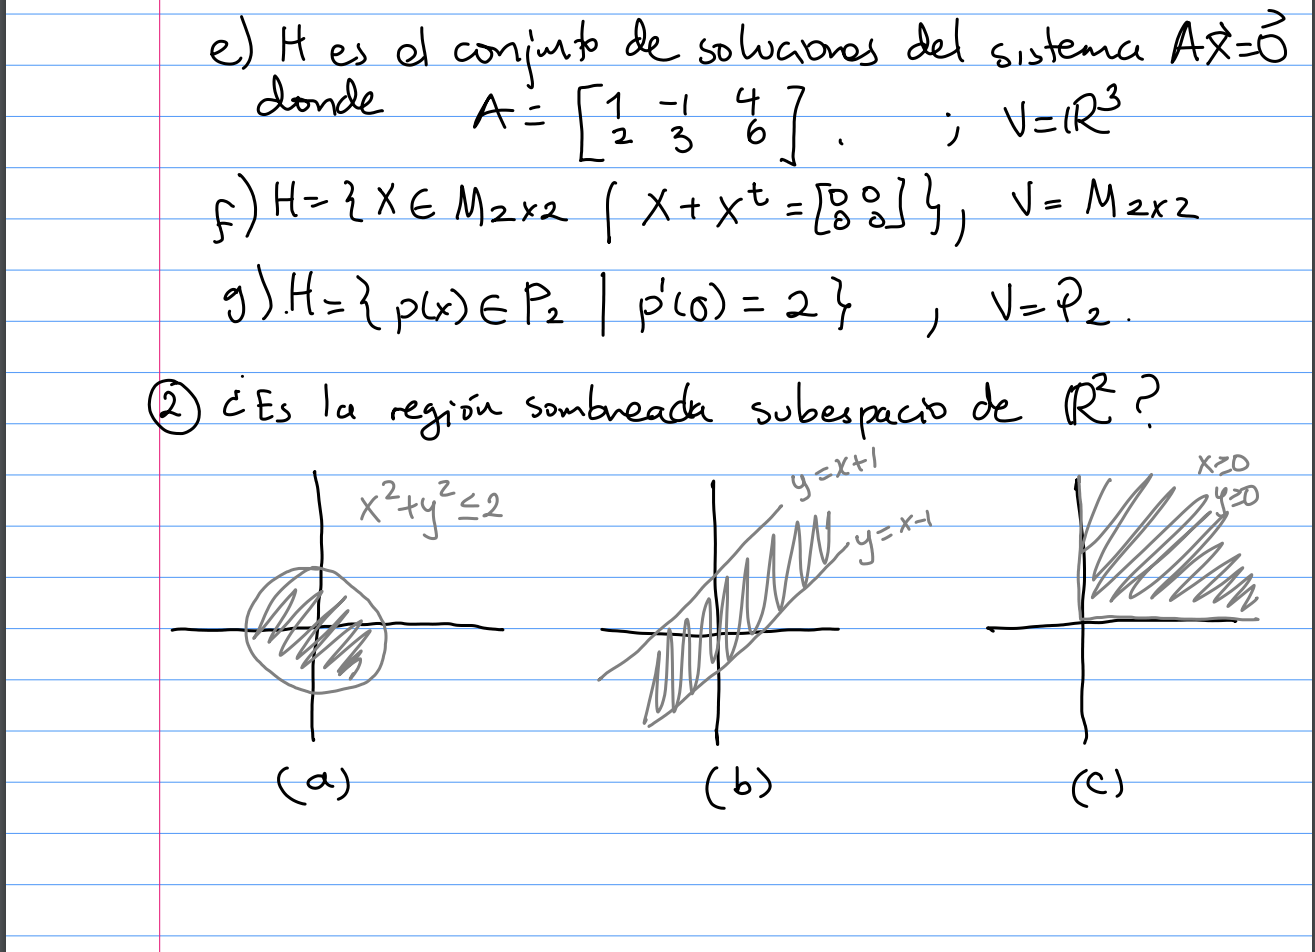 e) H es el conjunto de soluciones del sistema Ax⃗=0⃗
donde A = [1 -1 4
2 3 6] . ; V=ℝ³
f) H={X ∈ M₂ₓ₂ | X + Xᵗ = [0 0
0 0]}, V= M₂ₓ₂
g) H={p(x) ∈ P₂ | p'(0) = 2} , V=P₂.
② ¿Es la región sombreada subespacio de ℝ²?
x²+y²≤2
y=x+1
y=x-1
x≥0
y≥0
(a) (b) (c)